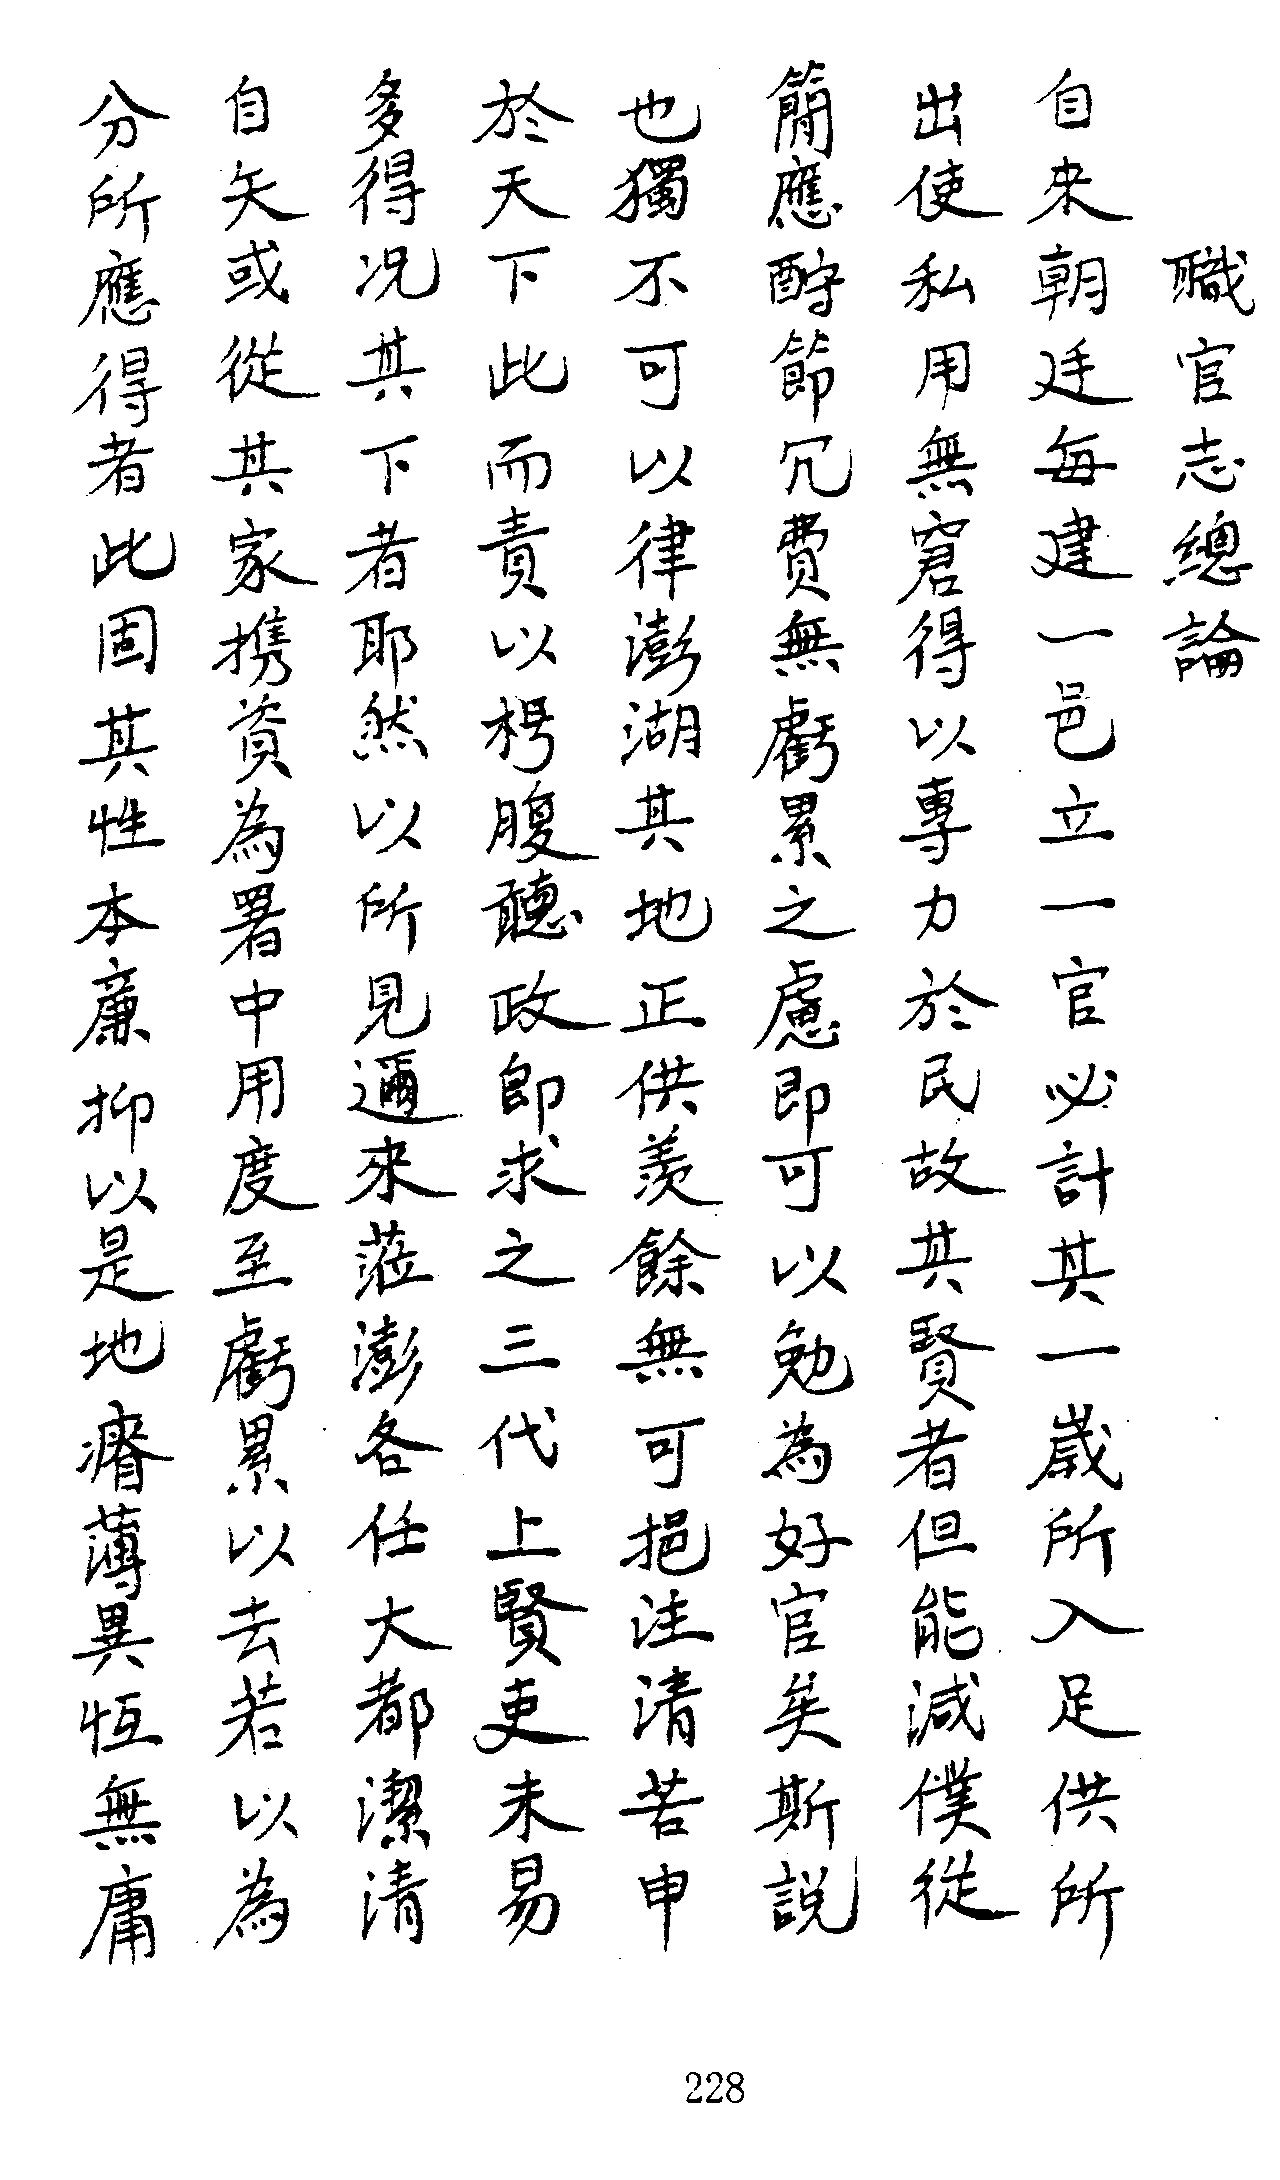 職官志總論
自來朝廷每建一邑立一官必計其一歲所入足供所
出使私用無窘得以專力於民故其賢者但能減僕從
簡應酧節冗費無虧累之慮即可以勉為好官矣斯說
也獨不可以律澎湖其地正供羨餘無可挹注清苦申
於天下此而責以枵腹聽政即求之三代上賢吏未易
多得況其下者耶然以所見邇來蒞澎各任大都潔清
自矢或從其家携資為署中用度至虧累以去若以為
分所應得者此固其性本廉抑以是地瘠薄異恆無庸
228